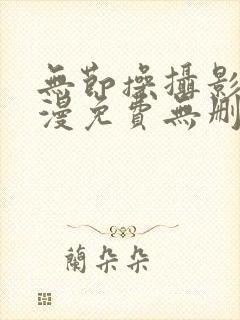 無節操攝影
漫免費無刪
蘭朵朵